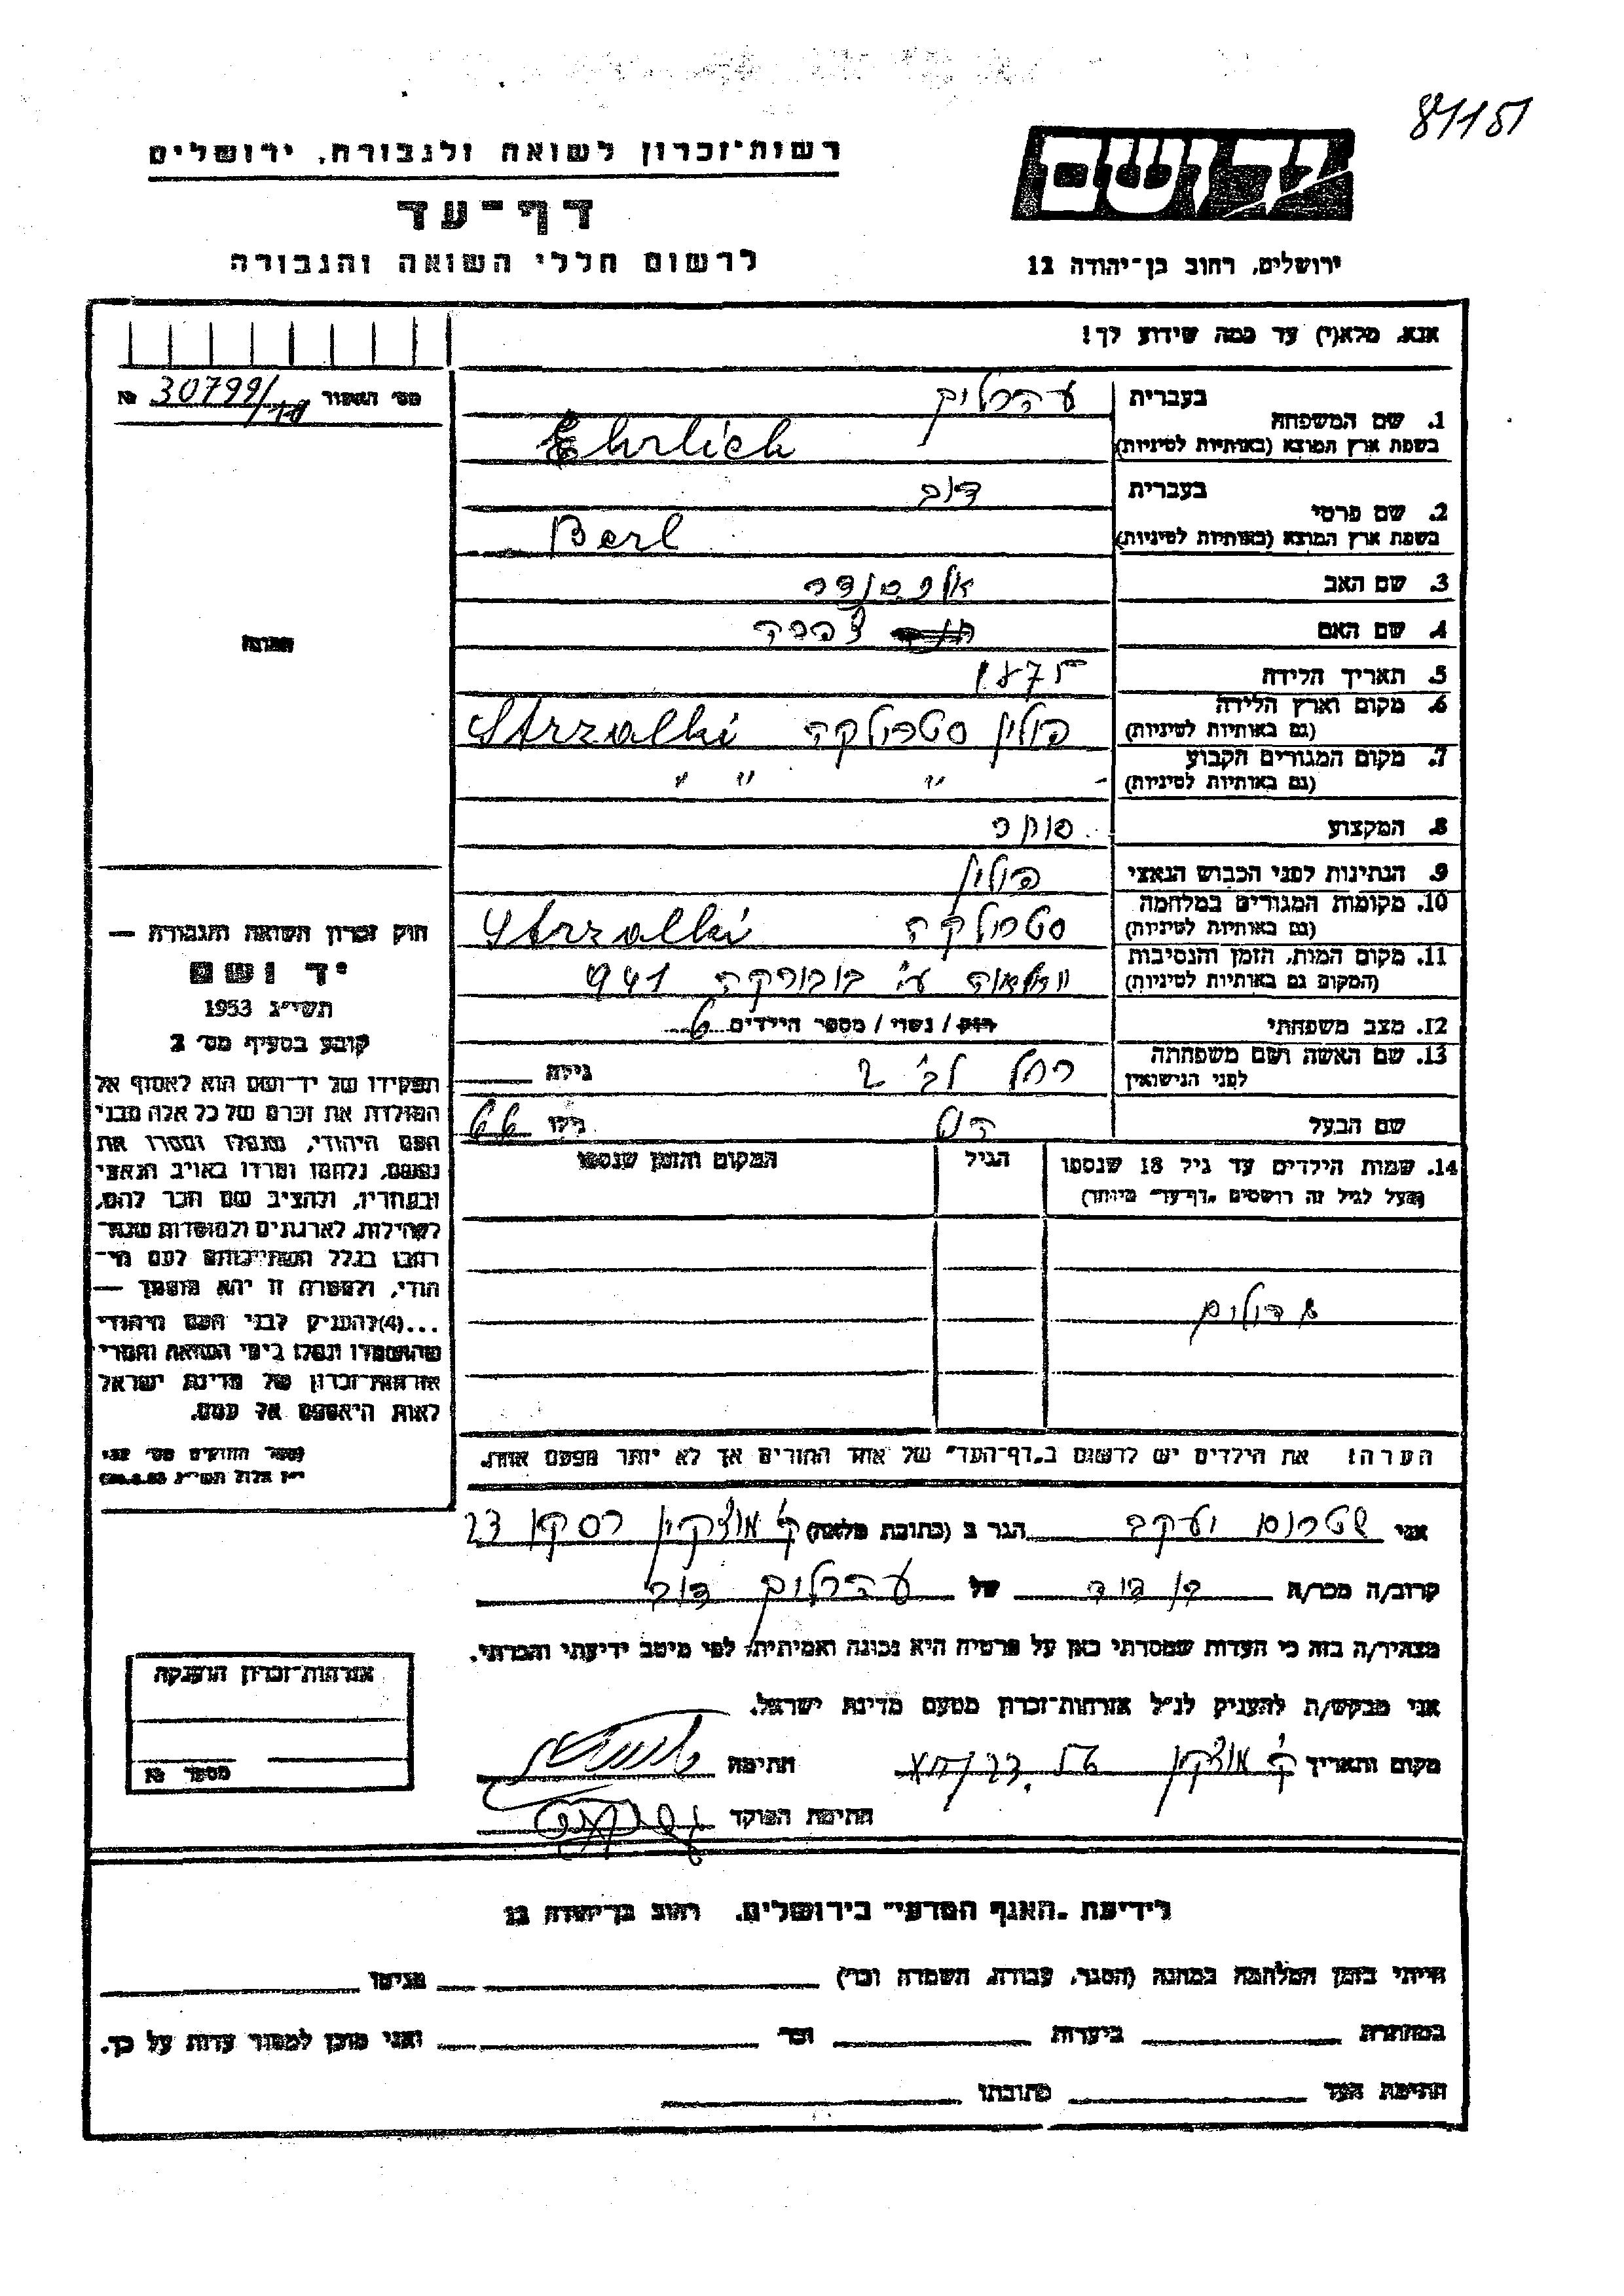 81151
רשות־זכרון לשואה ולגבורה, ירושלים
ידושם
דף־עד
לרשום חללי השואה והגבורה
ירושלים, רחוב בן־יהודה 12
אנא, מלא(י) עד כמה שידוע לך!
מס׳ השאלון № 30799/
1. שם המשפחה
בעברית עהרליך
בשפת ארץ המוצא (באותיות לטיניות) Ehrlich
2. שם פרטי
בעברית דוב
בשפת ארץ המוצא (באותיות לטיניות) Berl
3. שם האב אלכסנדר
4. שם האם
5. תאריך הלידה 1875
6. מקום וארץ הלידה פולין סטרולקה Strzalki
(גם באותיות לטיניות)
7. מקום המגורים הקבוע " " "
(גם באותיות לטיניות)
8. המקצוע סוחר
9. הנתינות לפני הכבוש הנאצי פולין
10. מקומות המגורים במלחמה סטרולקה Strzalki
(גם באותיות לטיניות)
11. מקום המות, הזמן והנסיבות ע״י בוברקה 941
(המקום גם באותיות לטיניות)
12. מצב משפחתי רוק / נשוי / מספר הילדים 6
13. שם האשה ושם משפחתה רחל גילה
לפני הנישואין
שם הבעל גילו 66
14. שמות הילדים עד גיל 18 שנספו הגיל המקום והזמן שנספו
(מעל לגיל זה רושמים „דף־עד״ מיוחד)
גדולים
הערה: את הילדים יש לרשום ב„דף־העד״ של אחד ההורים אך לא יותר מפעם אחת.
תמונה
חוק זכרון השואה והגבורה —
יד ושם
תשי״ג 1953
קובע בסעיף מס׳ 2
תפקידו של יד־ושם הוא לאסוף אל
המולדת את זכרם של כל אלה מבני
העם היהודי, שנפלו ומסרו את
נפשם, נלחמו ומרדו באויב הנאצי
ובעוזריו, ולהציב שם וזכר להם,
לקהילות, לארגונים ולמוסדות שנח־
רבו בגלל השתייכותם לעם הי־
הודי, ולמטרה זו יהא מוסמך —
...(4) להעניק לבני העם היהודי
שהושמדו ונפלו בימי השואה והמרי
אזרחות־זכרון של מדינת ישראל
לאות היאספם אל עמם.
(ספר החוקים מס׳ 132
י״ז אלול תשי״ג 28.8.53)
אני שטרום יעקב הגר ב (כתובת מלאה) ק׳ מוצקין רסקו 23
קרוב/ה מכר/ה בן דוד של עהרליך דוב
מצהיר/ה בזה כי העדות שמסרתי כאן על פרטיה היא נכונה ואמיתית, לפי מיטב ידיעתי והכרתי.
אני מבקש/ת להעניק לנ״ל אזרחות־זכרון מטעם מדינת ישראל.
מקום ותאריך ק׳ מוצקין חתימה
חתימת הפוקד
אזרחות־זכרון הוענקה
מספר №
לידיעת „האגף המדעי״ בירושלים, רחוב בן־יהודה 12
הייתי בזמן המלחמה במחנה (הסגר, עבודה, השמדה וכו׳) בגיטו
במחתרת ביערות וכו׳ ואני מוכן למסור עדות על כך.
חתימת העד כתובתו